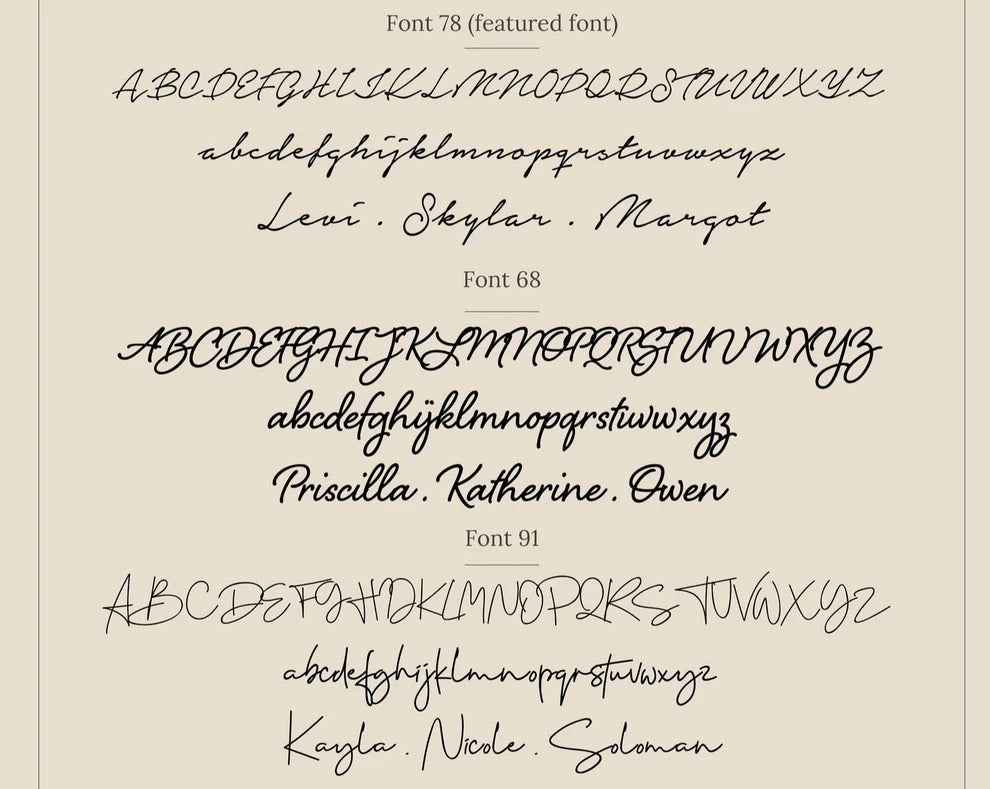 Font 78 (featured font)
ABCDEFGHIJKLMNOPQRSTUVWXYZ
abcdefghijklmnopqrstuvwxyz
Levi . Skylar . Margot
Font 68
ABCDEFGHIJKLMNOPQRSTUVWXYZ
abcdefghijklmnopqrstuvwxyz
Priscilla . Katherine . Owen
Font 91
ABCDEFGHIJKLMNOPQRSTUVWXYZ
abcdefghijklmnopqrstuvwxyz
Kayla . Nicole . Soloman